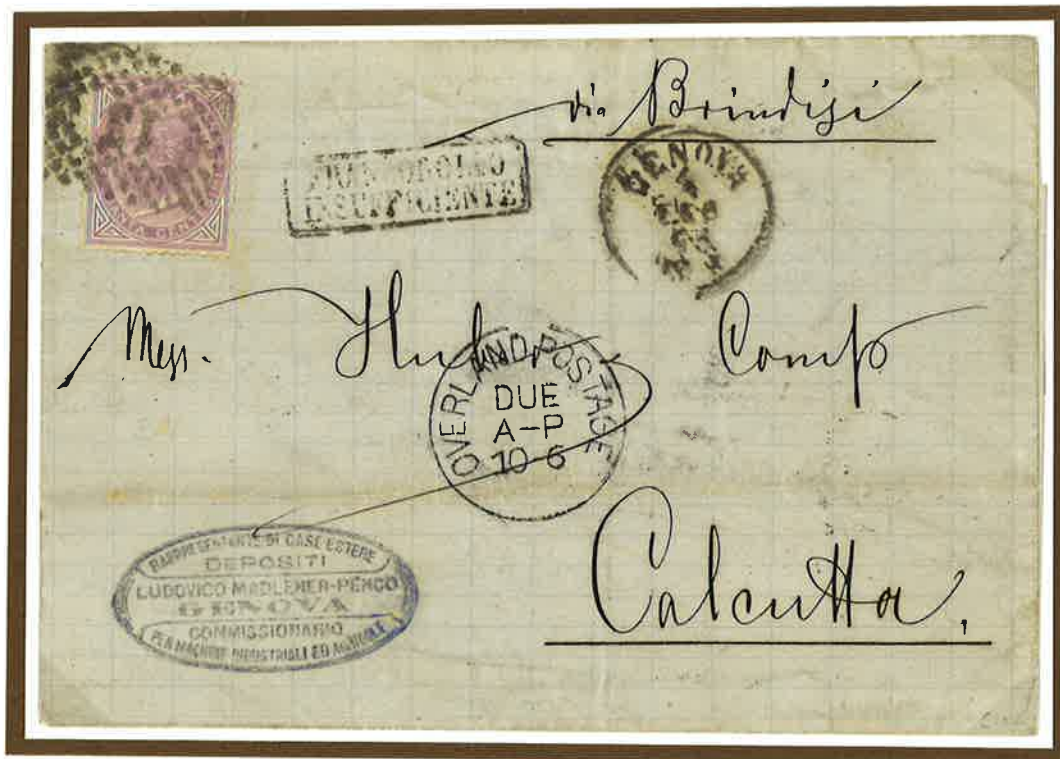 via Brindisi
FRANCOBOLLO
INSUFFICIENTE
GENOVA
Mess. Comp
OVERLAND POSTAGE
DUE
A-P
10-6
Calcutta,
RAPPRESENTANTE DI CASE ESTERE
DEPOSITI
LUDOVICO MADLENER-PENCO
GENOVA
COMMISSIONARIO
PER MACCHINE INDUSTRIALI ED AGRICOLE